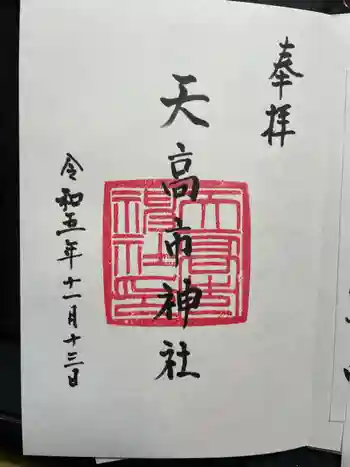 奉拝
天高市神社
令和五年十一月十三日